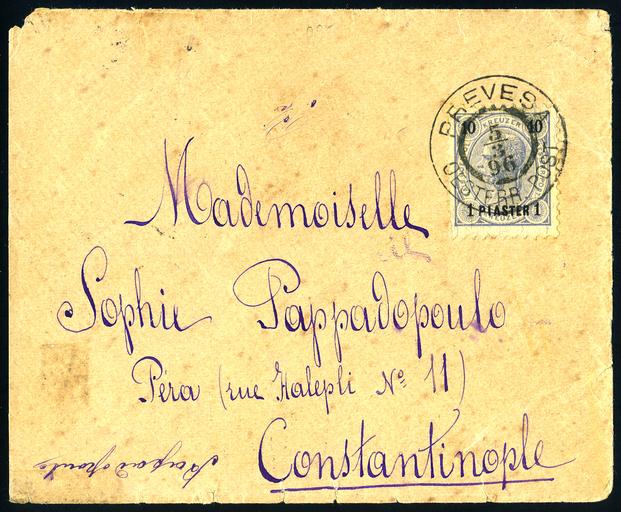 PREVESA
5/3
96
OESTERR. POST
10 KREUZER 10
1 PIASTER 1
KREUZER
Mademoiselle
Sophie Pappadopoulo
Péra (rue Halepli Nº 11)
Constantinople